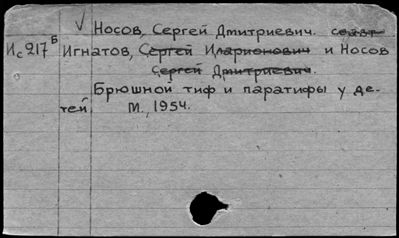 Носов, Сергей Дмитриевич. соавт
Ис 217Б Игнатов, Сергей Иларионович и Носов
Сергей Дмитриевич.
Брюшной тиф и паратифы у де-
тей. М., 1954.